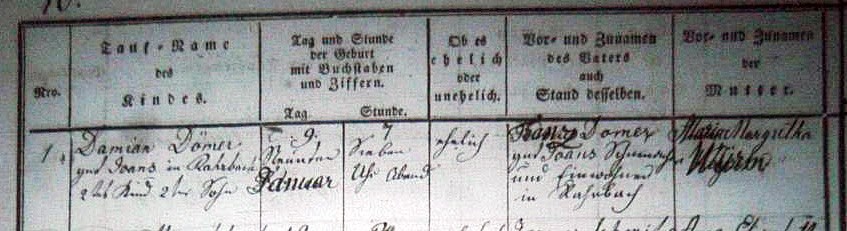 Nro.
Tauf-Name
des
Kindes.
Tag und Stunde
der Geburt
mit Buchstaben
und Ziffern.
Tag.
Stunde.
Ob es
ehelich
oder
unehelich.
Vor- und Zunamen
des Vaters
auch
Stand desselben.
Vor- und Zunamen
der
Mutter.
1.
Damian Dömer
gnt Joans in Rahrbach
2tes Kind 2ter Sohn
9.
Neunten
Januar
7
Sieben
Uhr Abend
ehelich
Franz Domer
gnt Joans
und Einwohner
in Rahrbach
Maria Margretha